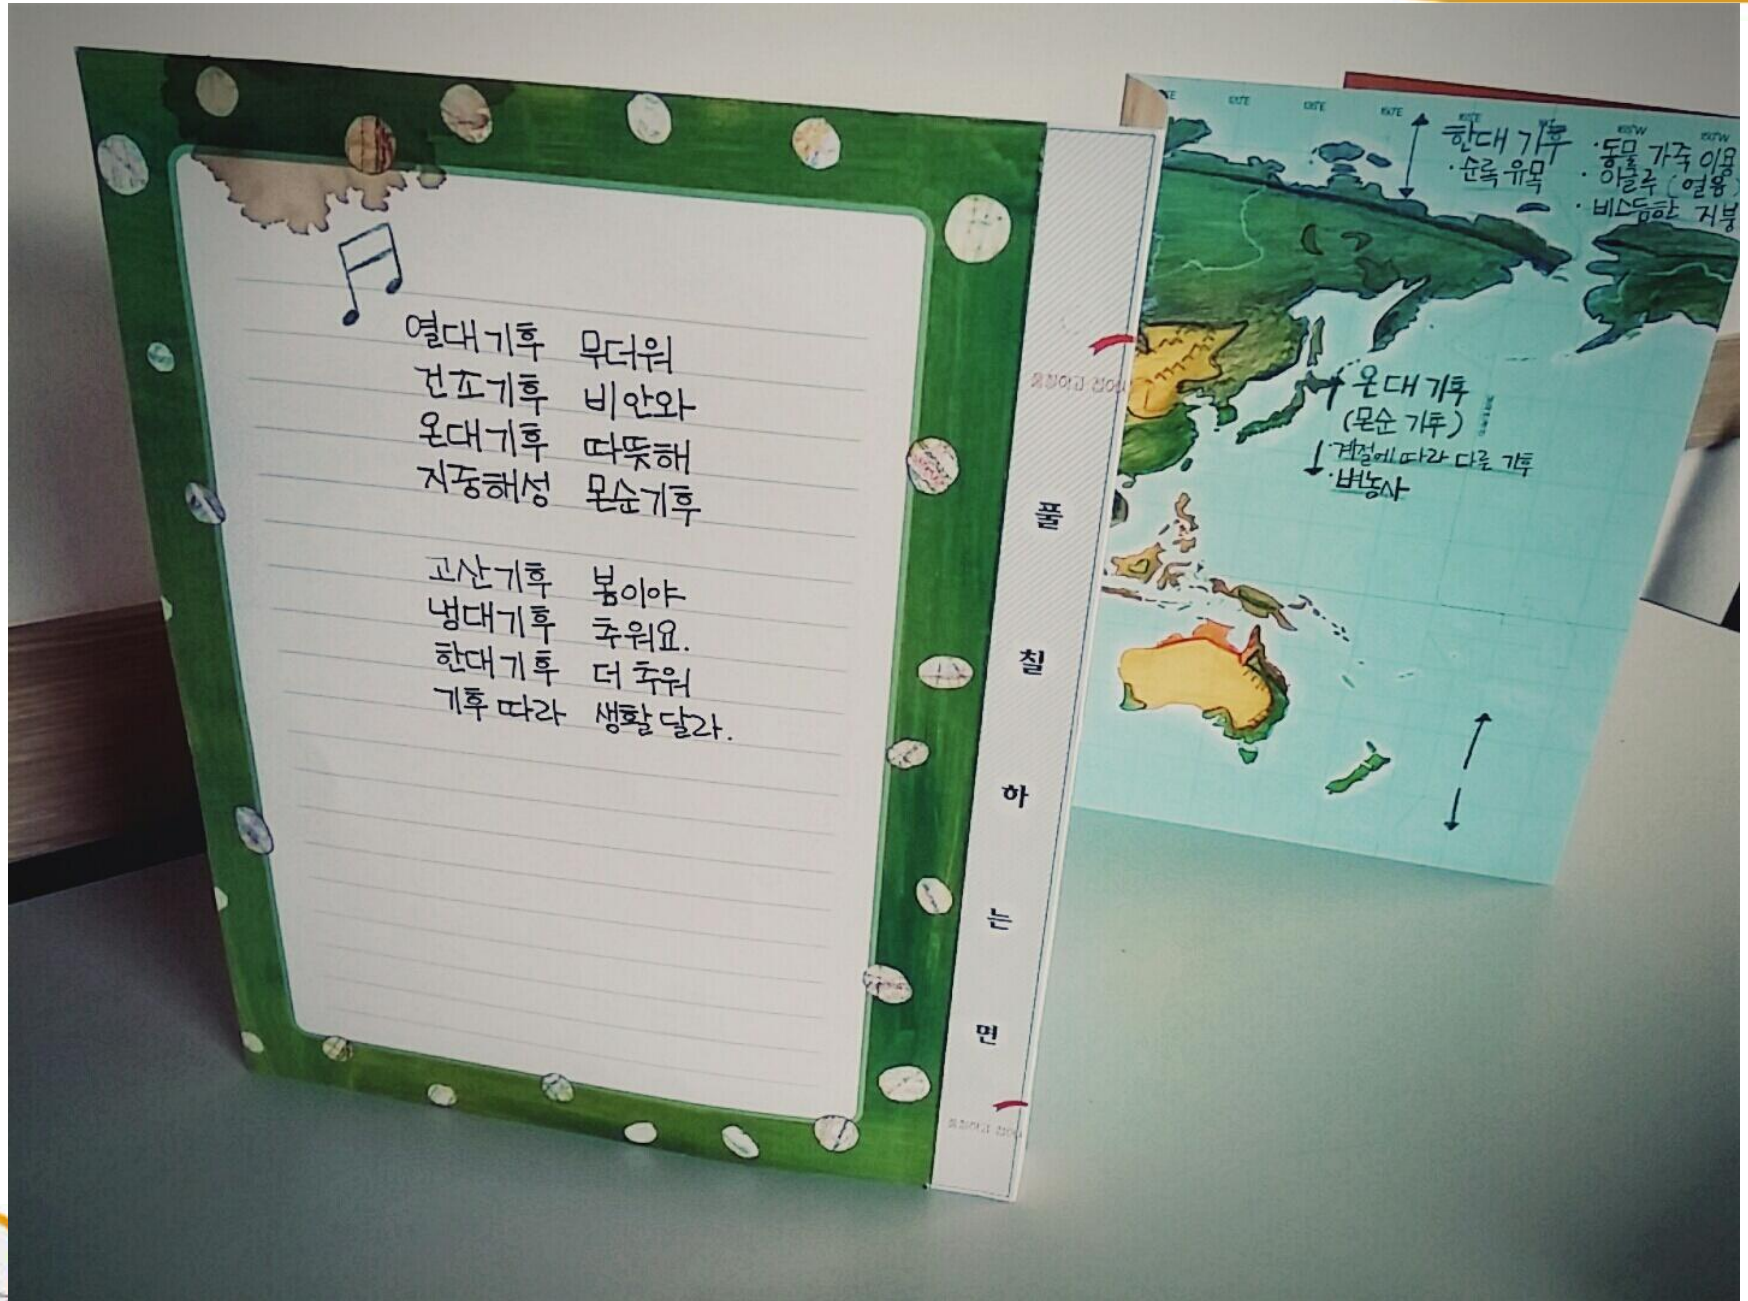 열대기후 무더워
건조기후 비안와
온대기후 따뜻해
지중해성 몬순기후
고산기후 봄이야
냉대기후 추워요.
한대기후 더 추워
기후 따라 생활 달라.
풀칠하는면
한대 기후
·순록 유목
·동물 가죽 이용
·이글루 (얼음)
·비스듬한 지붕
온대 기후
(몬순 기후)
·계절에 따라 다른 기후
·벼농사